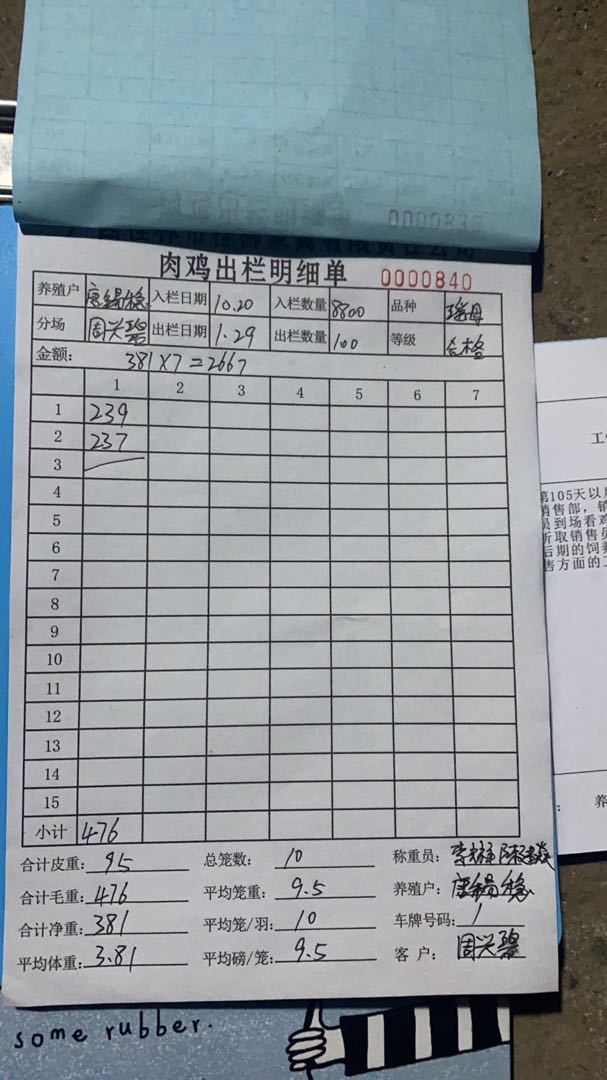 0000839
肉鸡出栏明细单 0000840
养殖户 唐锡稳 入栏日期 10.20 入栏数量 8800 品种 瑶母
分场 周兴碧 出栏日期 1.29 出栏数量 100 等级 合格
金额: 381×7=2667
1 2 3 4 5 6 7
1 239
2 237
3
4
5
6
7
8
9
10
11
12
13
14
15
小计 476
合计皮重: 95 总笼数: 10 称重员:
合计毛重: 476 平均笼重: 9.5 养殖户: 唐锡稳
合计净重: 381 平均笼/羽: 10 车牌号码: /
平均体重: 3.81 平均磅/笼: 9.5 客户: 周兴碧
第105天以
销售部,销
员到场看鸡
听取销售员
后期的饲养
售方面的工
养
some rubber.